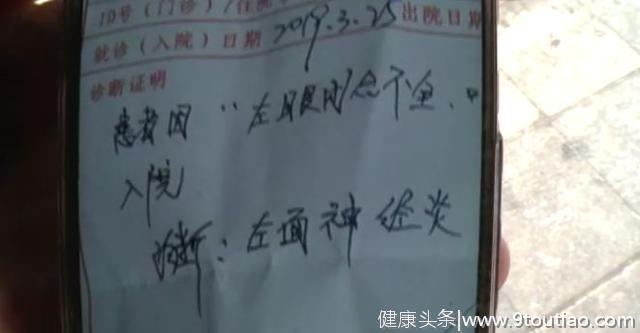 ID号(门诊)/住院
就诊(入院)日期 2019.3.25 出院日期
诊断证明
患者因“左眼闭合不全."
入院
诊断:左面神经炎
健康头条/www.9toutiao.com